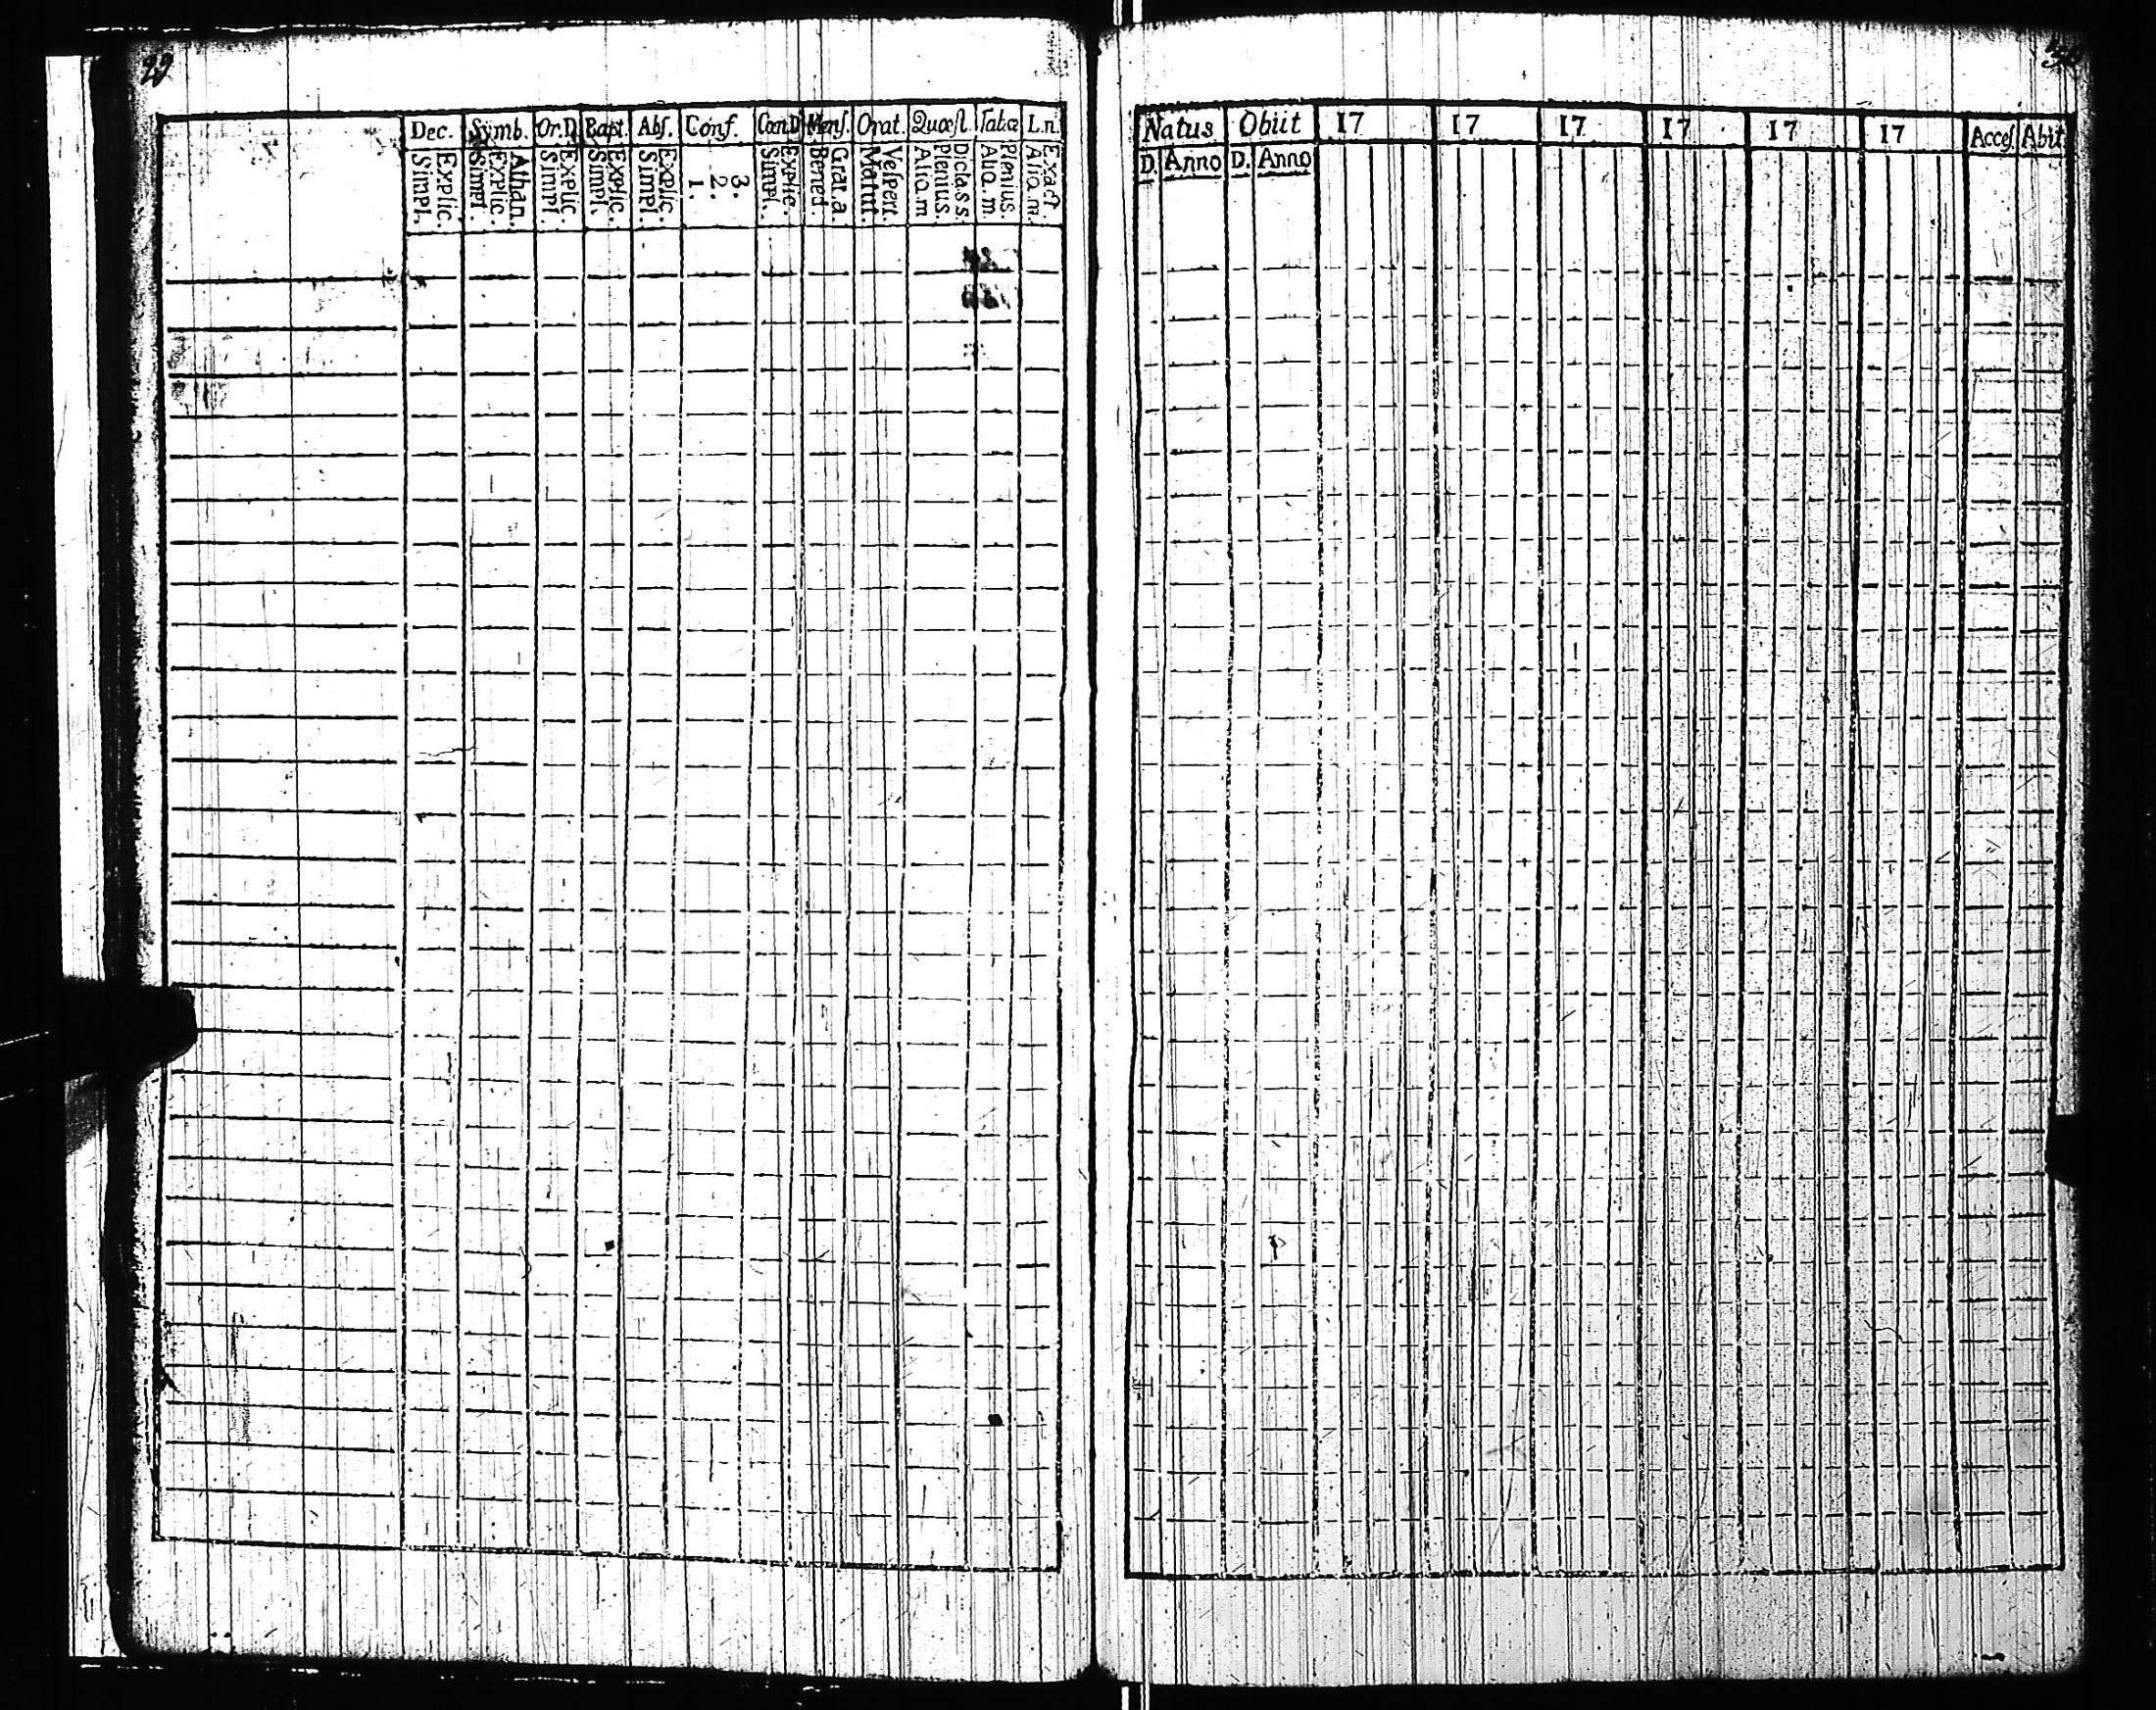 29
Dec. Symb. Or.D Bapt. Abſ. Conf. Cœn.D Menſ. Orat. Quæſt. Tab.æ L.n.
Explic. Simpl.
Athan. Explic. Simpl.
Explic. Simpl.
Explic. Simpl.
Explic. Simpl.
3. 2. 1.
Explic. Simpl.
Grat.a Bened.
Veſpert. Matut.
Dicta s s. Plenius. Aliq.m
Plenius. Aliq.m.
Exact. Aliq.m.
Natus Obiit 17 17 17 17 17 17 Acceſ. Abit
D. Anno D. Anno